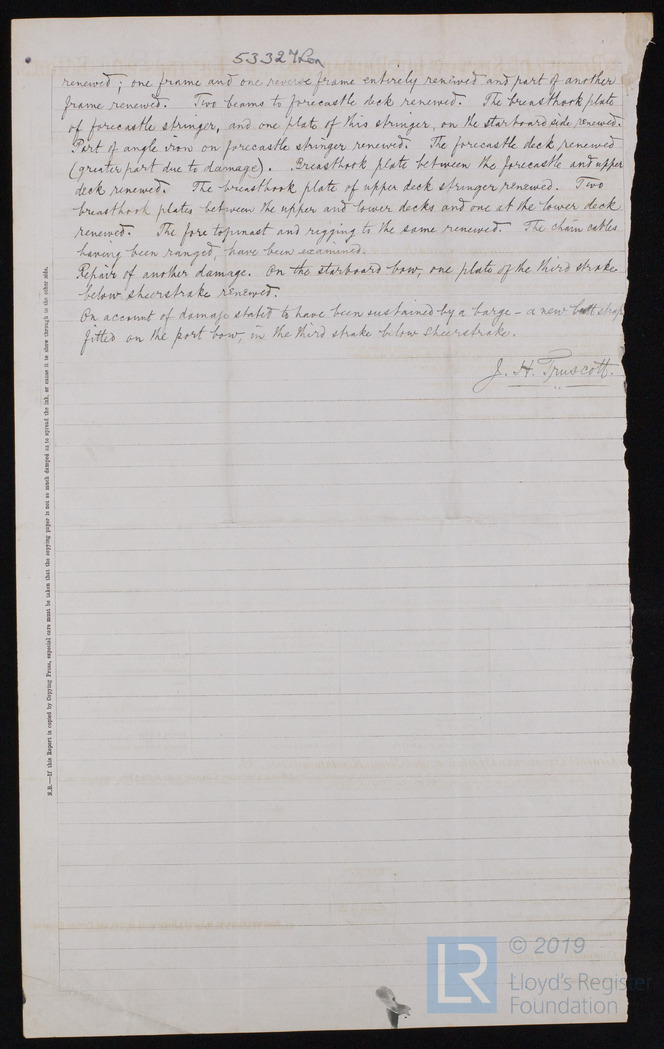 53327 Lon
renewed; one frame and one reverse frame entirely renewed and part of another
frame renewed. Two beams to forecastle deck renewed. The breasthook plate
of forecastle stringer, and one plate of this stringer, on the starboard side renewed.
Part of angle iron on forecastle stringer renewed. The forecastle deck renewed
(greater part due to damage). Breasthook plate between the forecastle and upper
deck renewed. The breasthook plate of upper deck stringer renewed. Two
breasthook plates between the upper and lower decks and one at the lower deck
renewed. The fore topmast and rigging to the same renewed. The chain cables
having been ranged, have been examined.
Repair of another damage. On the starboard bow, one plate of the third strake
below sheerstrake renewed.
On account of damage stated to have been sustained by a barge - a new butt strap
fitted on the port bow, in the third strake below sheerstrake.
J. H. Truscott.
N.B.—If this Report is copied by Copying Press, especial care must be taken that the copying paper is not so much damped as to spread the ink, or cause it to show through to the other side.
LR
© 2019
Lloyd's Register
Foundation